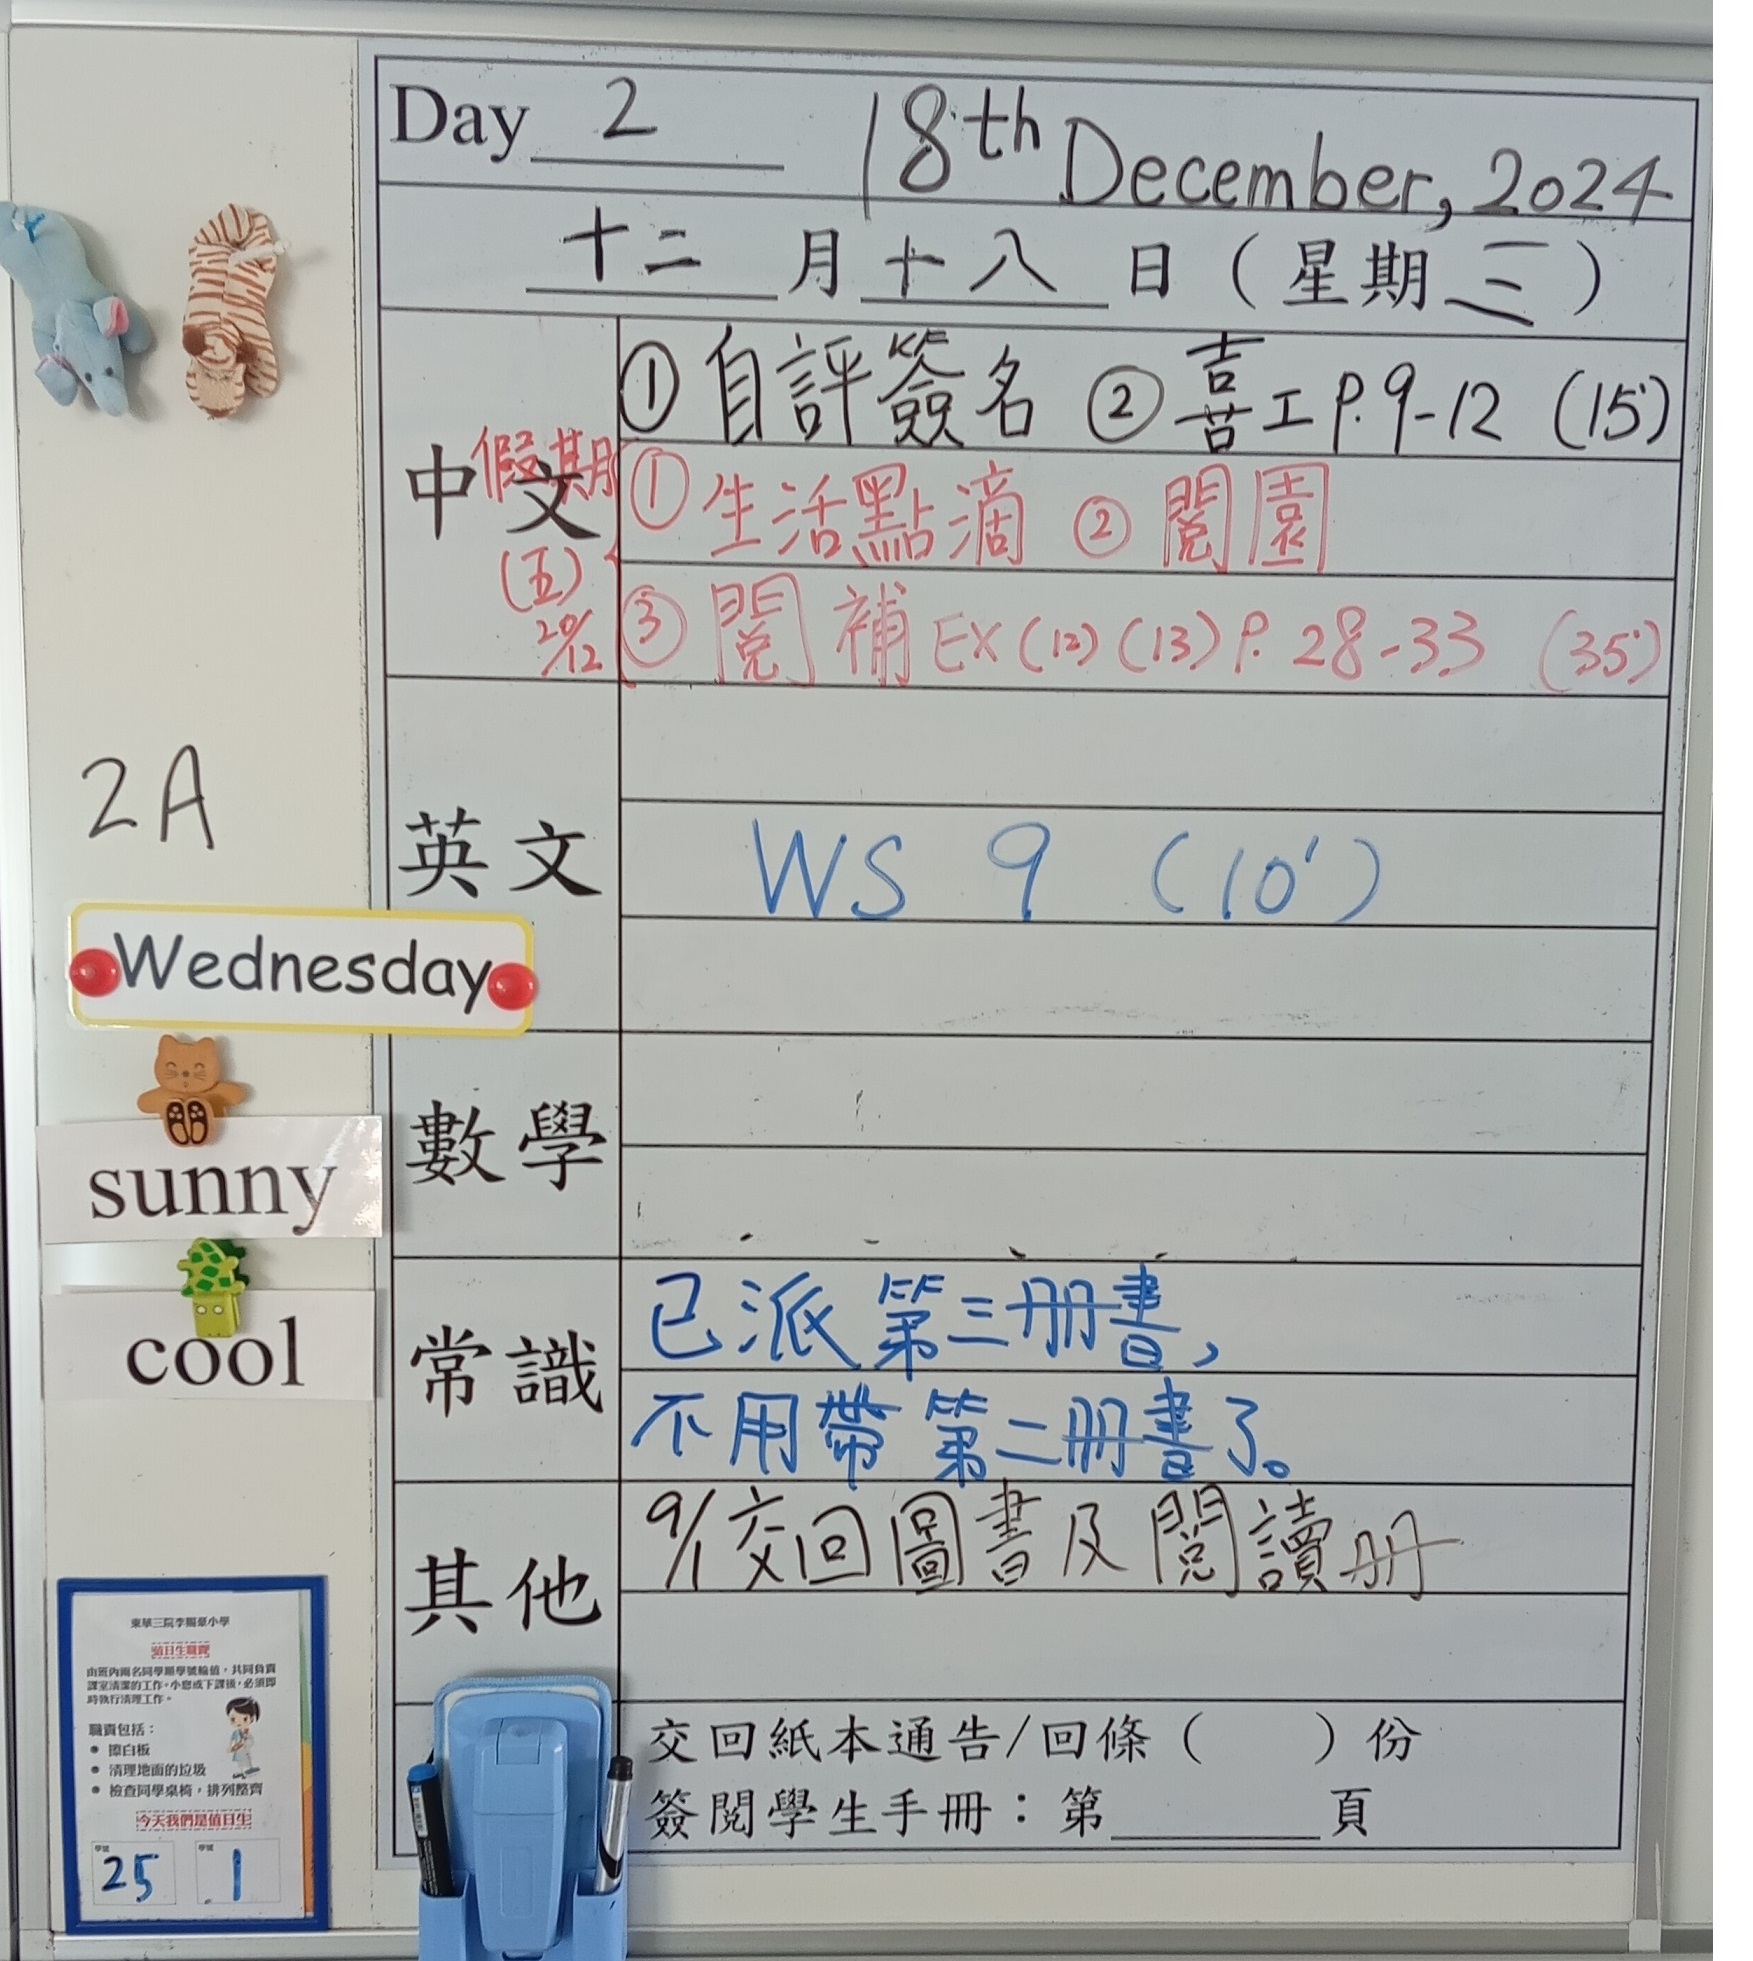 Day 2 18th December, 2024
十二 月 十八 日 (星期 三)
中文
① 自評簽名 ② 喜工 P.9-12 (15')
假期
(五)
20/12
① 生活點滴 ② 閱園
③ 閱補 EX (12) (13) P. 28-33 (35')
2A
英文
WS 9 (10')
Wednesday
數學
sunny
常識
已派第三冊書,
不用帶第二冊書了。
cool
其他
9/1 交回圖書及閱讀冊
交回紙本通告/回條( )份
簽閱學生手冊:第______頁
東華三院李賜豪小學
值日生職責
由班內兩名同學順學號輪值,共同負責
課室清潔的工作。小息或下課後,必須即
時執行清理工作。
職責包括:
• 擦白板
• 清理地面的垃圾
• 檢查同學桌椅,排列整齊
今天我們是值日生
學號 學號
25 1